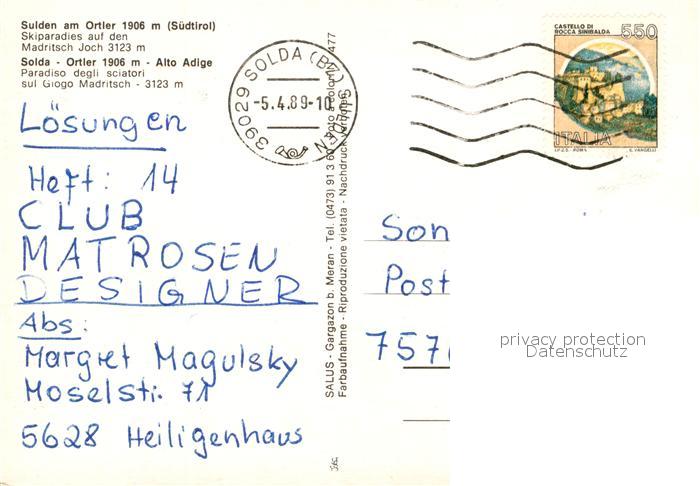 Sulden am Ortler 1906 m (Südtirol)
Skiparadies auf den
Madritsch Joch 3123 m
Solda - Ortler 1906 m - Alto Adige
Paradiso degli sciatori
sul Giogo Madritsch - 3123 m
39029 SOLDA (BZ)
-5.4.89-10
SULDEN
CASTELLO DI
ROCCA SINIBALDA
550
ITALIA
I.P.Z.S. - ROMA
E. VANGELLI
Lösungen
Heft: 14
CLUB
MATROSEN
DESIGNER
Abs:
Margret Magulsky
Moselstr. 71
5628 Heiligenhaus
SALUS - Gargazon b. Meran - Tel. (0473) 91 3 60 477
Farbaufnahme - Riproduzione vietata - Nachdruck verboten
Son
Post
757
privacy protection
Datenschutz